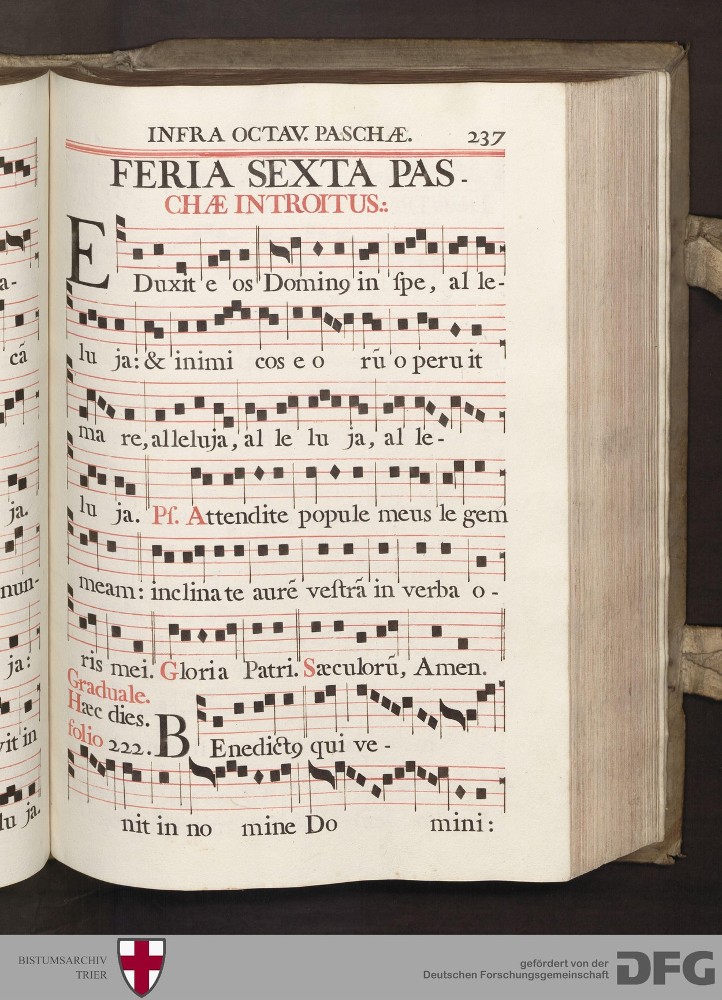 INFRA OCTAV. PASCHÆ. 237
FERIA SEXTA PAS-
CHÆ INTROITUS.:
EDuxit e os Dominꝯ in ſpe, al le-
lu ja: & inimi cos e o rū o peru it
ma re, alleluja, al le lu ja, al le-
lu ja. Pſ. Attendite popule meus le gem
meam: inclinate aurē veſtrā in verba o-
ris mei. Gloria Patri. Sæculorū, Amen.
Graduale.
Hæc dies.
folio 222. BEnedictꝯ qui ve-
nit in no mine Do mini:
a-
cā
ja.
nun-
ja:
vit in
lu ja.
BISTUMSARCHIV
TRIER
gefördert von der
Deutschen Forschungsgemeinschaft
DFG